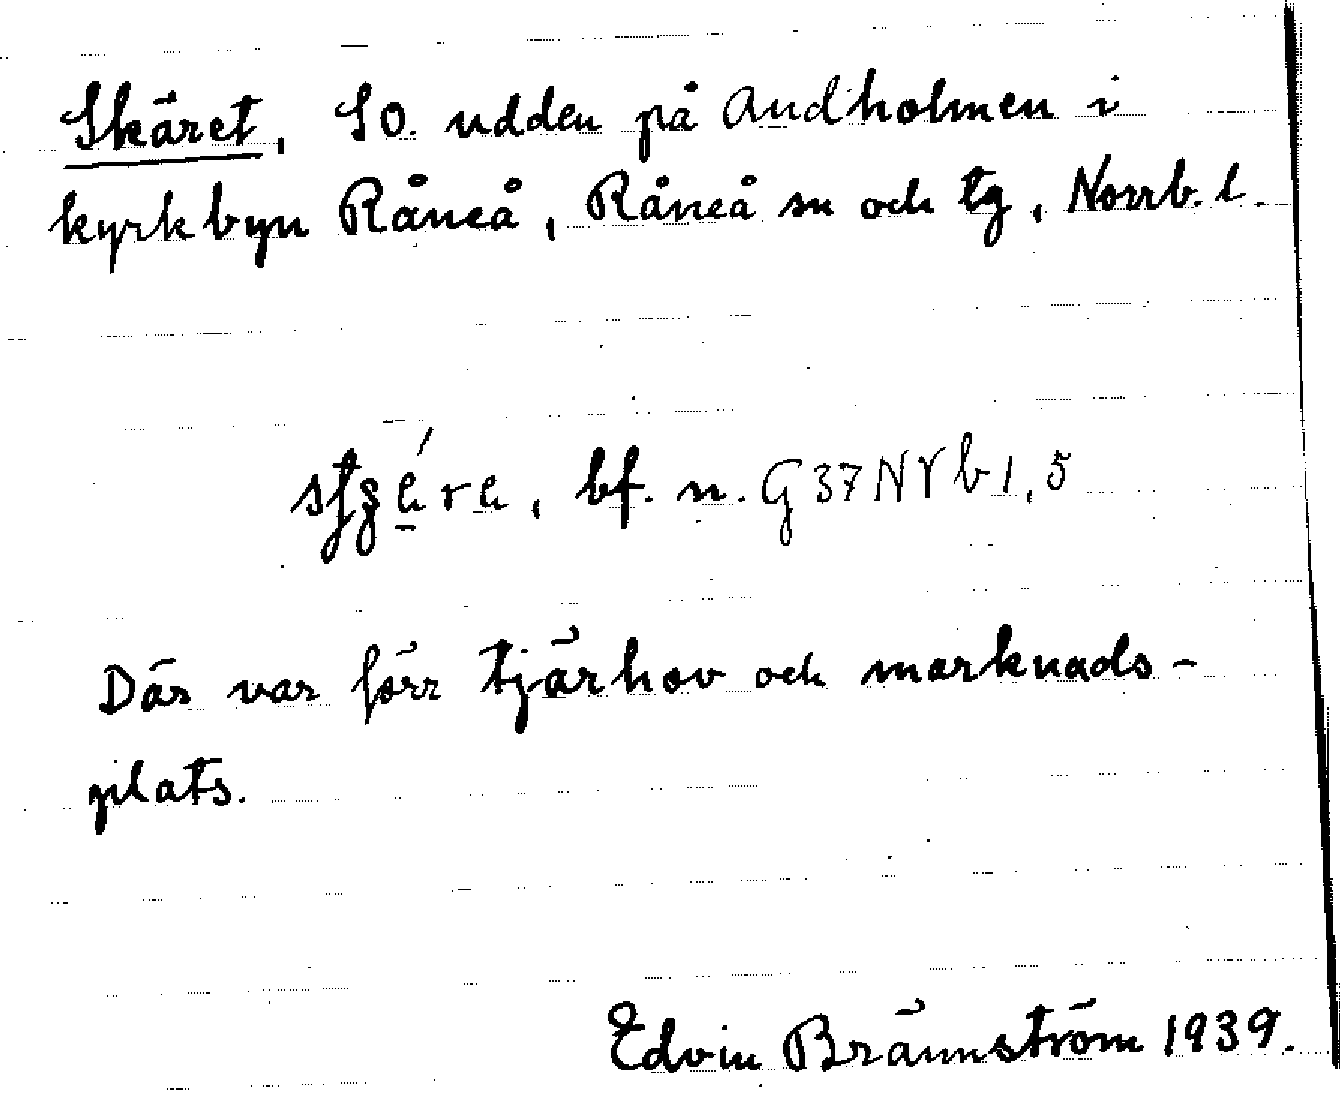 Skäret, SO. udden på Andholmen i
kyrkbyn Råneå, Råneå sn och tg, Norrb. l.
bf. n. G 37 NVb 1, 5
Där var förr tjärhov och marknads-
plats.
Edvin Brännström 1939.